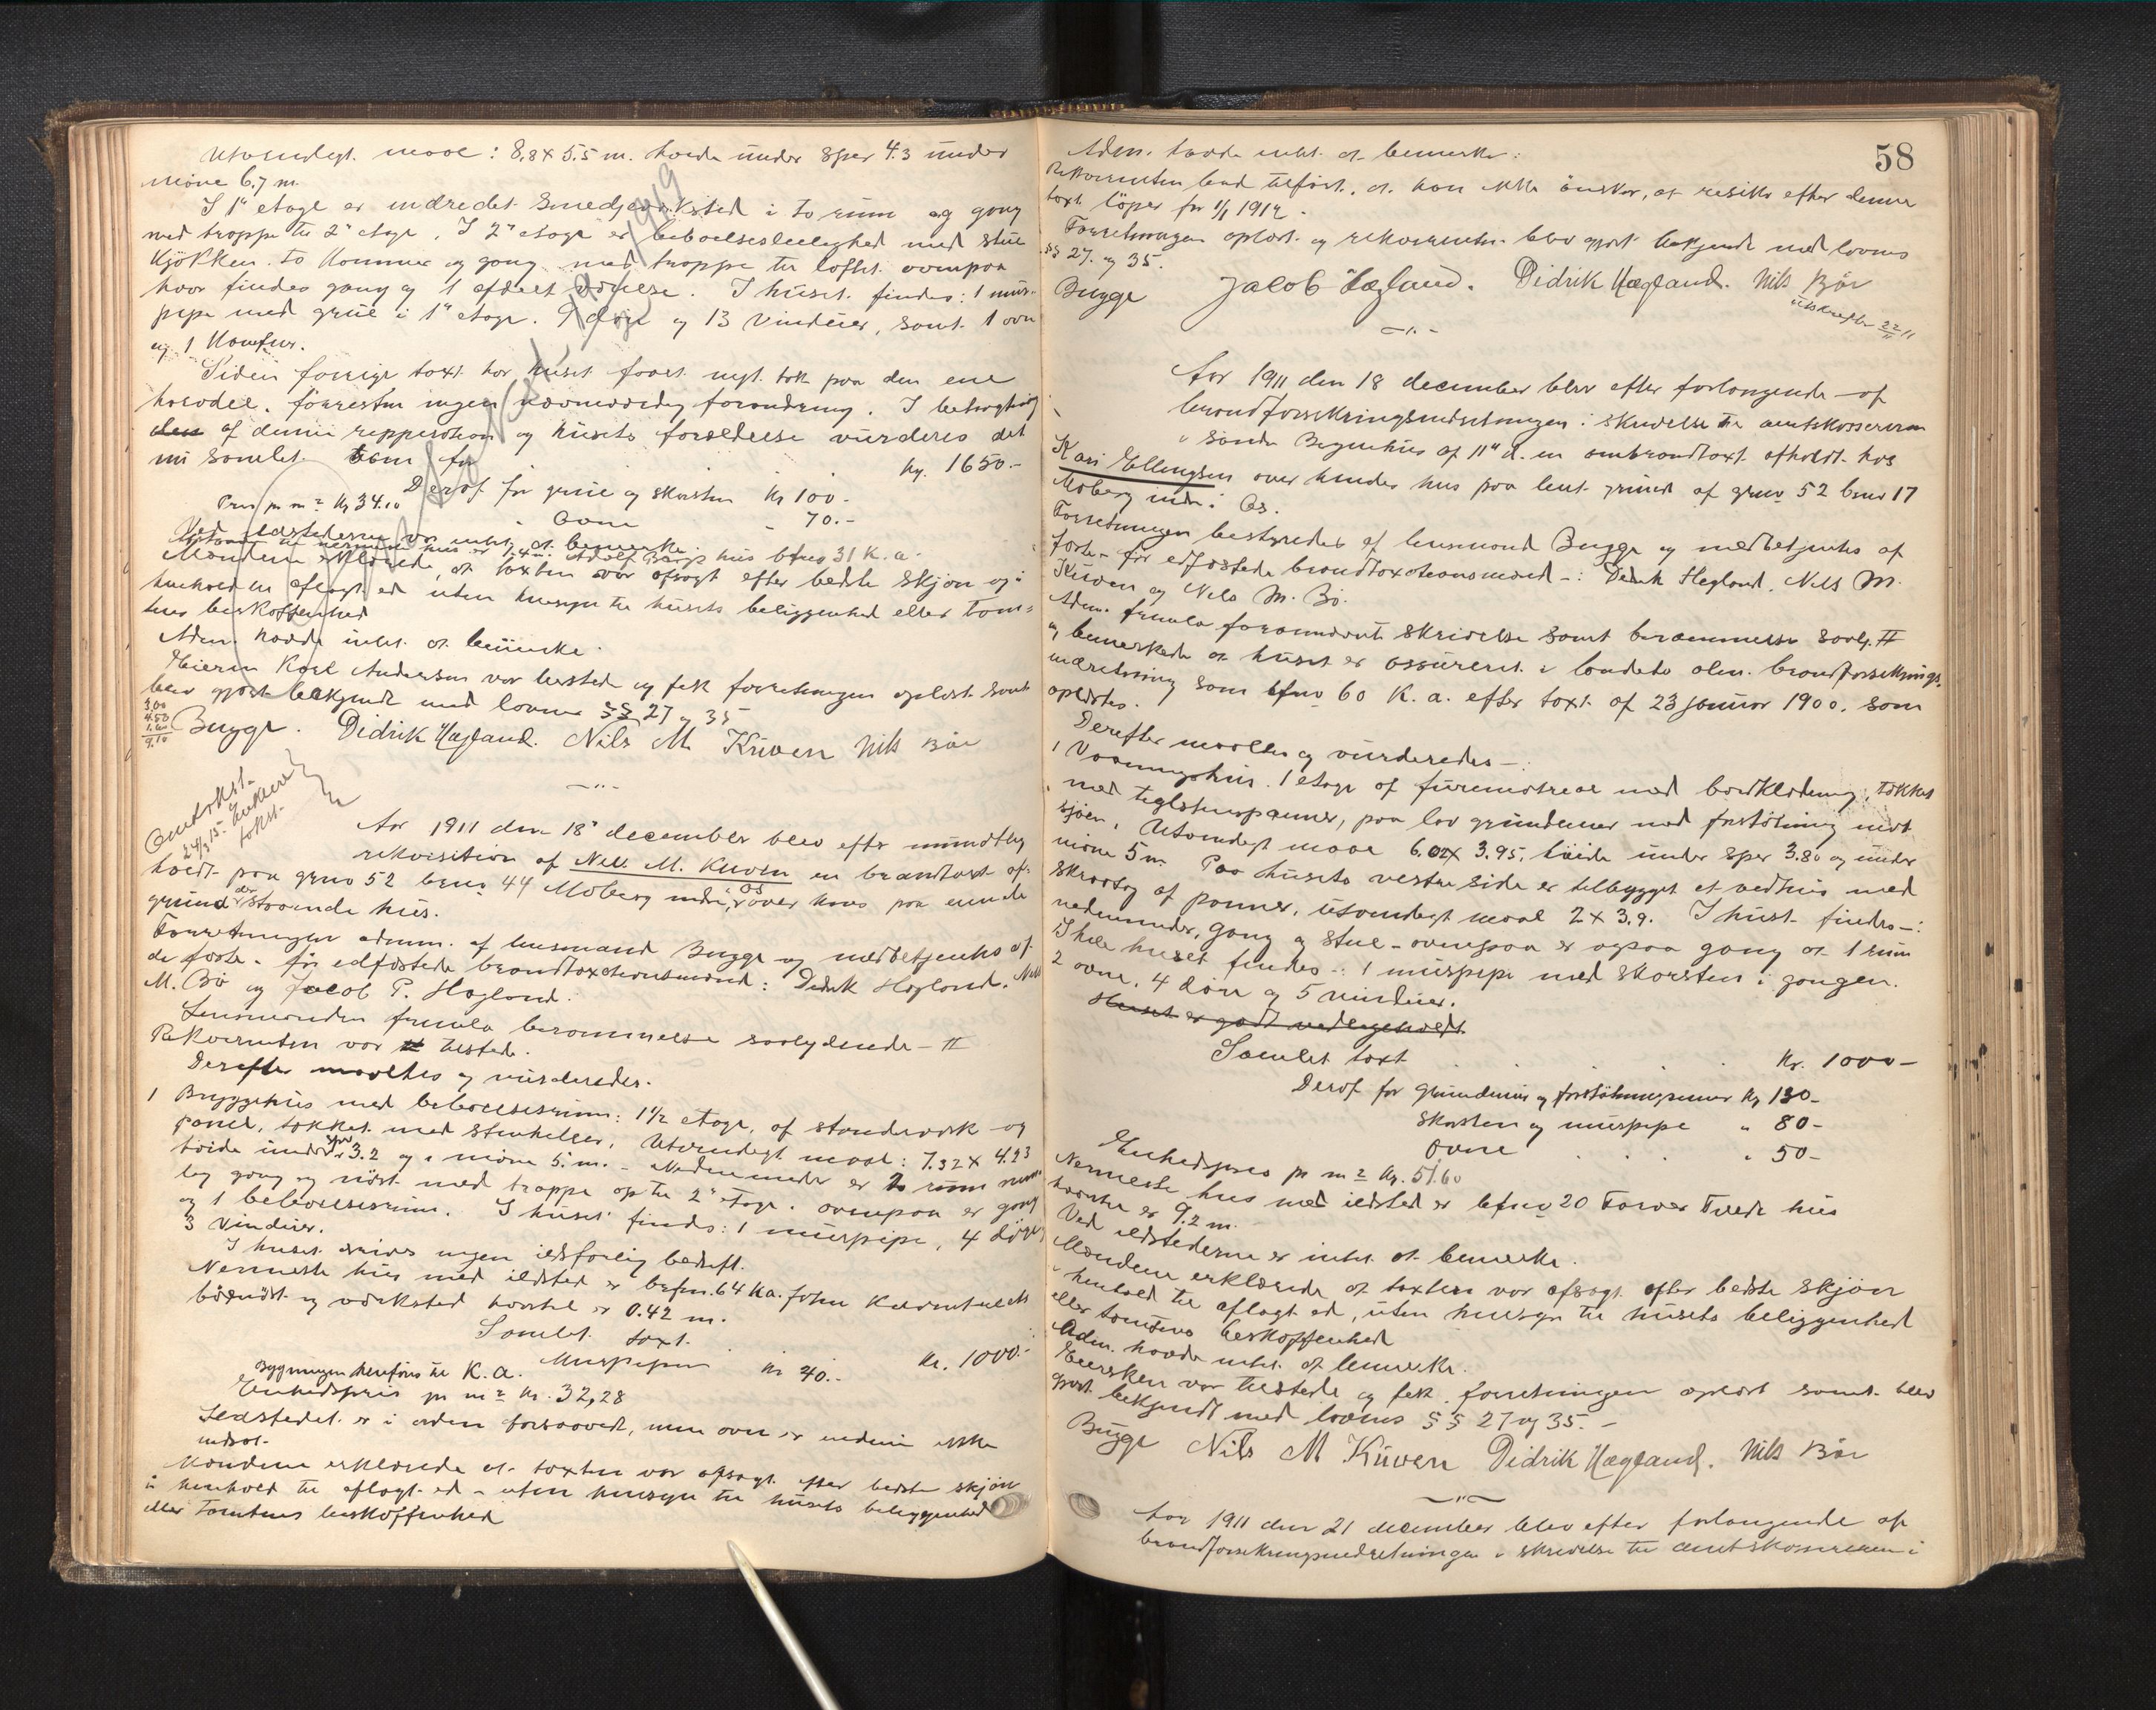 Utvendigt maal: 8,8 x 5.5 m. høide under sper 4.3 under
møne 6,7 m.
I 1ste etage er indredet Smedjeverksted i to rum og gang
med trappe til 2den etage. I 2den etage er beboelsesleilighed med stue
kjøkken, to kammer og gang med trappe til loftet ovenpaa
hvor findes gang og 1 afdelt værelse. I huset findes: 1 mur-
pipe med grue i 1ste etage. 9 døre og 13 vinduer, samt 1 ovn
og 1 komfur.
Siden forrige taxt har huset faaet nyt tak paa den ene
halvdel, forresten ingen nævneværdig forandring. I betragtning
af denne repperation og husets forældelse vurderes det
nu samlet for kr. 1650.-
Deraf for grue og skorsten kr 100-
Pris pr m2 kr 34.10
" Ovne - 70.-
Ved ildstederne var intet at bemerke.
Afstand til nærmeste hus er 1,4 m. hus bfno 31 K. a.
Mændene erklærede, at taxten var afsagt efter bedste skjøn og i
henhold til aflagt ed uten hensyn til husets beliggenhed eller tom-
tens beskaffenhed
Adm. havde intet at bemerke.
Eieren Karl Andersen var tilstede og fik forretningen oplæst samt
blev gjort bekjendt med lovens §§ 27 og 35
3.00
4.50
1.60
9.10
Bugge. Didrik Hægland. Nils M Kuven Nils Bør
- " -
Omtakst
24/3 15.
takst.
Aar 1911 den 18de december blev efter mundtlig
rekvisition af Nils M. Kuven en brandtaxt af-
holdt paa gno 52 bno 44 Moberg indre i Os over hans paa eiende
grund der staaende hus.
Forretningen admin. af lensmand Bugge og medbetjentes af
de faste - før edfæstede brandtaxationsmænd: Didrik Hægland, Nils
M. Bø og Jacob P. Hægland.
Lensmanden fremla berammelse saalydende - #
Rekvirenten var tilstede.
Derefter maaltes og vurderedes.
1 Bryggehus med beboelsesrum: 1½ etage, af stenderverk og
panel, tækket med stenheller. Utvendigt maal: 7.32 x 4.23
høide under sper 3.2 og i møne 5. m. - Nedenunder er 2 rum nem-
lig gang og nøst med trappe op til 2den etage. ovenpaa er gang
og 1 beboelsesrum. I huset findes: 1 murpipe, 4 døre
3 vinduer.
I huset drives ingen ildsfarlig bedrift.
Nermeste hus med ildsted er brfm. 64 K a. John
baadnøst og verksted avstand er 0.42 m.
Samlet taxt. Kr. 1000.-
Murpipen kr 40.-
Bygningen henføres til K. a.
Enhedspris pr m2 kr. 32,28
Ildstedet er i orden forsaavidt, men ovn er endnu ikke
indsat.
Mændene erklærede at taxten var afsagt efter bedste skjøn
i henhold til aflagt ed - uten hensyn til husets beliggenhed
eller tomtens beskaffenhed
58
Adm. havde intet at bemerke:
Rekvirenten lod tilført, at han ikke ønsker, at risiko efter denne
taxt løper før 1/1 1912.
Forretningen oplæst og rekvirenten blev gjort bekjendt med lovens
§§ 27. og 35.
Bugge Jacob Hægland. Didrik Hægland. Nils Bør
Utskreften 22/11 11
- " -
Aar 1911 den 18 december blev efter forlangende af
brandforsikringsindretningen i skrivelse til amtskassereren
i søndre Bergenhus af 11te d. m ombrandtaxt afholdt hos
Kari Ellingsen over hendes hus paa leiet grund af gno 52 bno 17
Moberg indre i Os.
Forretningen bestyredes af lensmand Bugge og medbetjentes af
faste - før edfæstede brandtaxationsmænd -: Didrik Hegland, Nils M.
Kuven og Nils M. Bø.
Adm. fremla forannævnte skrivelse samt berammelse saal. #
og bemerkede at huset er assureret i landets alm. brandforsikrings-
indretning som bfno 60 K. a. efter taxt af 23 januar 1900. som
oplæstes.
Derefter maaltes og vurderedes -:
1 Vaaningshus. 1 etage af furematreal med bordklædning, tækket
med teglstenspanner, paa lav grundmur med forstøtning mot
sjøen. Utvendigt maal 6.02 x 3.95, høide under sper 3.80 og under
møne 5 m. Paa husets vestre side er tilbygget et vedhus med
skraatag af panner, utvendigt maal 2 x 3.9. I huset findes -:
nedenunder, gang og stue - ovenpaa er ogsaa gang og 1 rum
I hele huset findes -: 1 murpipe med skorsten i gangen.
2 ovne, 4 døre og 5 vinduer.
Huset er godt vedligeholdt.
Samlet taxt . . . Kr. 1000-
Deraf for grundmur og forstøtningsmur kr 130-
Skorsten og murpipe " 80-
Ovne . . . " 50-
Enhedspris pr m2 kr. 51.60
Nermeste hus med ildsted er bfno 20 hus
avstand er 9.2 m.
Ved ildstederne er intet at bemerke.
Mændene erklærede at taxten var afsagt efter bedste skjøn
i henhold til aflagt ed, uten hensyn til husets beliggenhed
eller tomtens beskaffenhed
Adm. havde intet at bemerke.
Eiersken var tilstede og fik forretningen oplæst samt blev
gjort bekjendt med lovens §§ 27 og 35. -
Bugge Nils M Kuven Didrik Hægland. Nils Bør
- " -
Aar 1911 den 21 december blev efter forlangende af
brandforsikringsindretningen i skrivelse til amtskassereren i